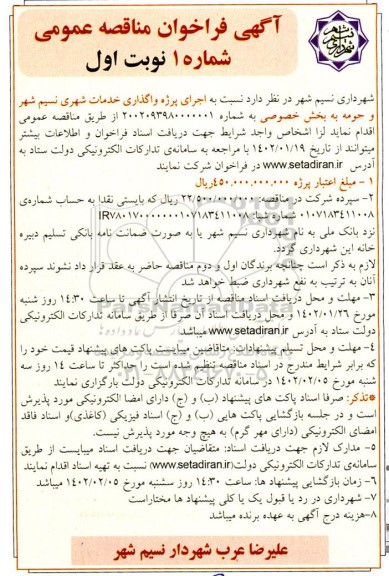 آگهی فراخوان مناقصه عمومی
شماره۱ نوبت اول
شهرداری نسیم شهر در نظر دارد نسبت به اجرای پرژه واگذاری خدمات شهری نسیم شهر
و حومه به بخش خصوصی به شماره ۲۰۰۲۰۹۳۹۸۰۰۰۰۰۰۱ از طریق مناقصه عمومی
اقدام نماید لزا اشخاص واجد شرایط جهت دریافت اسناد فراخوان و اطلاعات بیشتر
میتوانند از تاریخ ۱۴۰۲/۰۱/۱۹ با مراجعه به سامانه‌ی تدارکات الکترونیکی دولت ستاد به
آدرس www.setadiran.ir در فراخوان شرکت نمایند
۱ – مبلغ اعتبار پرژه ۴۵۰.۰۰۰.۰۰۰.۰۰۰ریال
۲- سپرده شرکت در مناقصه: ۲۲/۵۰۰/۰۰۰/۰۰۰ ریال که بایستی نقدا به حساب شماره‌ی
۰۱۰۷۱۸۳۴۱۱۰۰۸ شماره شبا:
نزد بانک ملی به نام شهرداری نسیم شهر یا به صورت ضمانت نامه بانکی تسلیم دبیره
خانه این شهرداری گردد.
لازم به ذکر است چنانچه برندگان اول و دوم مناقصه حاضر به عقد قرار داد نشوند سپرده
آنان به ترتیب به نفع شهرداری ضبط خواهد شد
۳- مهلت و محل دریافت اسناد مناقصه از تاریخ انتشار آگهی تا ساعت ۱۴:۳۰ روز شنبه
مورخ ۱۴۰۲/۰۱/۲۶ و محل دریافت اسناد صرفا از طریق سامانه تدارکات الکترونیکی
دولت ستاد به آدرس www.setadiran.ir میباشد
۴- مهلت و محل تسلیم پیشنهادات: متقاضیان میبایست پاکت های پیشنهاد قیمت خود را
که برابر شرایط مندرج در اسناد مناقصه تنظیم شده است را حداکثر تا ساعت ۱۴ روز سه
شنبه مورخ ۱۴۰۲/۰۲/۰۵ در سامانه تدارکات الکترونیکی دولت بارگزاری نمایند
*تذکر: صرفا اسناد پاکت های پیشنهاد (ب) و (ج) دارای امضا الکترونیکی مورد پذیرش
است و در جلسه بازگشایی پاکت هایی (ب) و (ج) اسناد فیزیکی (کاغذی)و اسناد فاقد
امضای الکترونیکی (دارای مهر گرم) به هیچ وجه مورد پذیرش نیست.
۵- مدارک لازم جهت دریافت اسناد: متقاضیان جهت دریافت اسناد میبایست از طریق
سامانه‌ی تدارکات الکترونیکی دولت(www.setadiran.ir) نسبت به تهیه اسناد اقدام نمایند
۶- زمان بازگشایی پیشنهاد ها: ساعت ۱۴:۳۰ روز سشنبه مورخ ۱۴۰۲/۰۲/۰۵ میباشد
۷- شهرداری در رد یا قبول یک یا کلی پیشنهاد ها مختاراست
۸-هزینه درج آگهی به عهده برنده میباشد
علیرضا عرب شهردار نسیم شهر